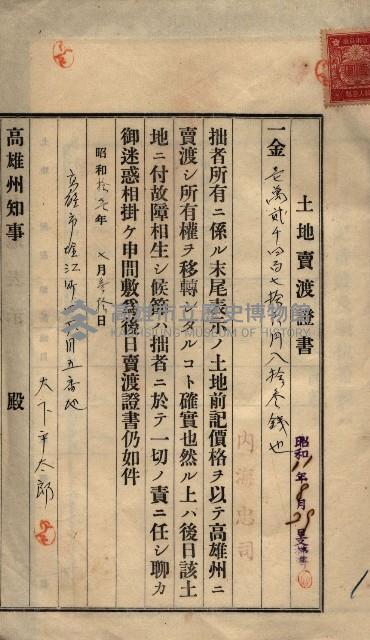 土地賣渡證書
一金壱萬貳千四百七拾円八拾参錢也
拙者所有ニ係ル末尾表示ノ土地前記價格ヲ以テ高雄州ニ
賣渡シ所有權ヲ移轉シタルコト確實也然ル上ハ後日該土
地ニ付故障相生シ候節ハ拙者ニ於テ一切ノ責ニ任シ聊カ
御迷惑相掛ケ申間敷爲後日賣渡證書仍如件
昭和拾年七月参拾日
高雄市堀江町 丁目五番地
大下平太郎
高雄州知事 殿
昭和11年8月29
內海忠司
高雄市立歷史博物館
KAOHSIUNG MUSEUM OF HISTORY